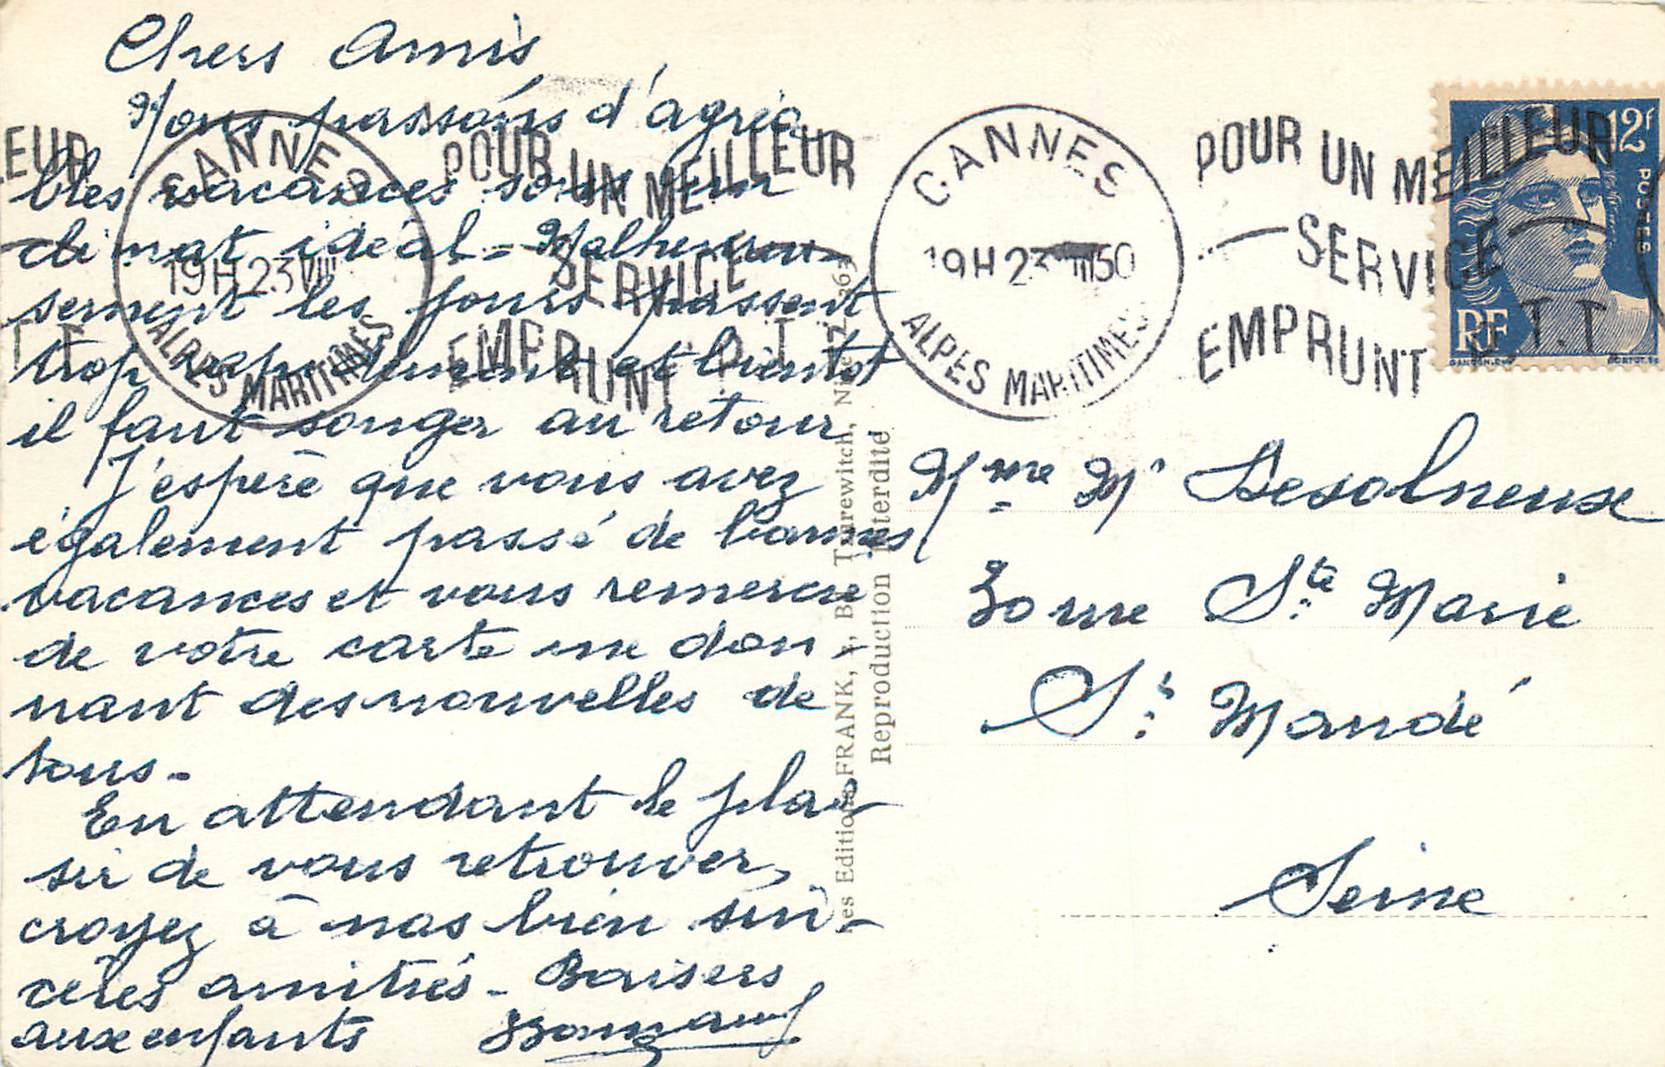 Chers Amis
Nous passons d'agréa
bles vacances sous un
climat idéal - Malheureu-
sement les jours passent
trop rapidement et bientôt
il faut songer au retour
J'espère que vous avez
également passé de bonnes
vacances et vous remercie
de votre carte me don-
nant des nouvelles de
tous -
En attendant le plai-
sir de vous retrouver,
croyez à nos bien sin-
cères amitiés - Baisers
aux enfants
LEUR
T T
CANNES
19H 23 VIII
ALPES MARITIMES
POUR UN MEILLEUR
SERVICE
EMPRUNT P.T.T
CANNES
19H 23 VIII 50
ALPES MARITIMES
POUR UN MEILLEUR
SERVICE
EMPRUNT P.T.T
12f
POSTES
RF
GANDON
Les Editions FRANK, 2, B Tzarewitch, Nice
Reproduction Interdite
Mme M Desolneux
30 rue Ste Marie
St Mandé
Seine